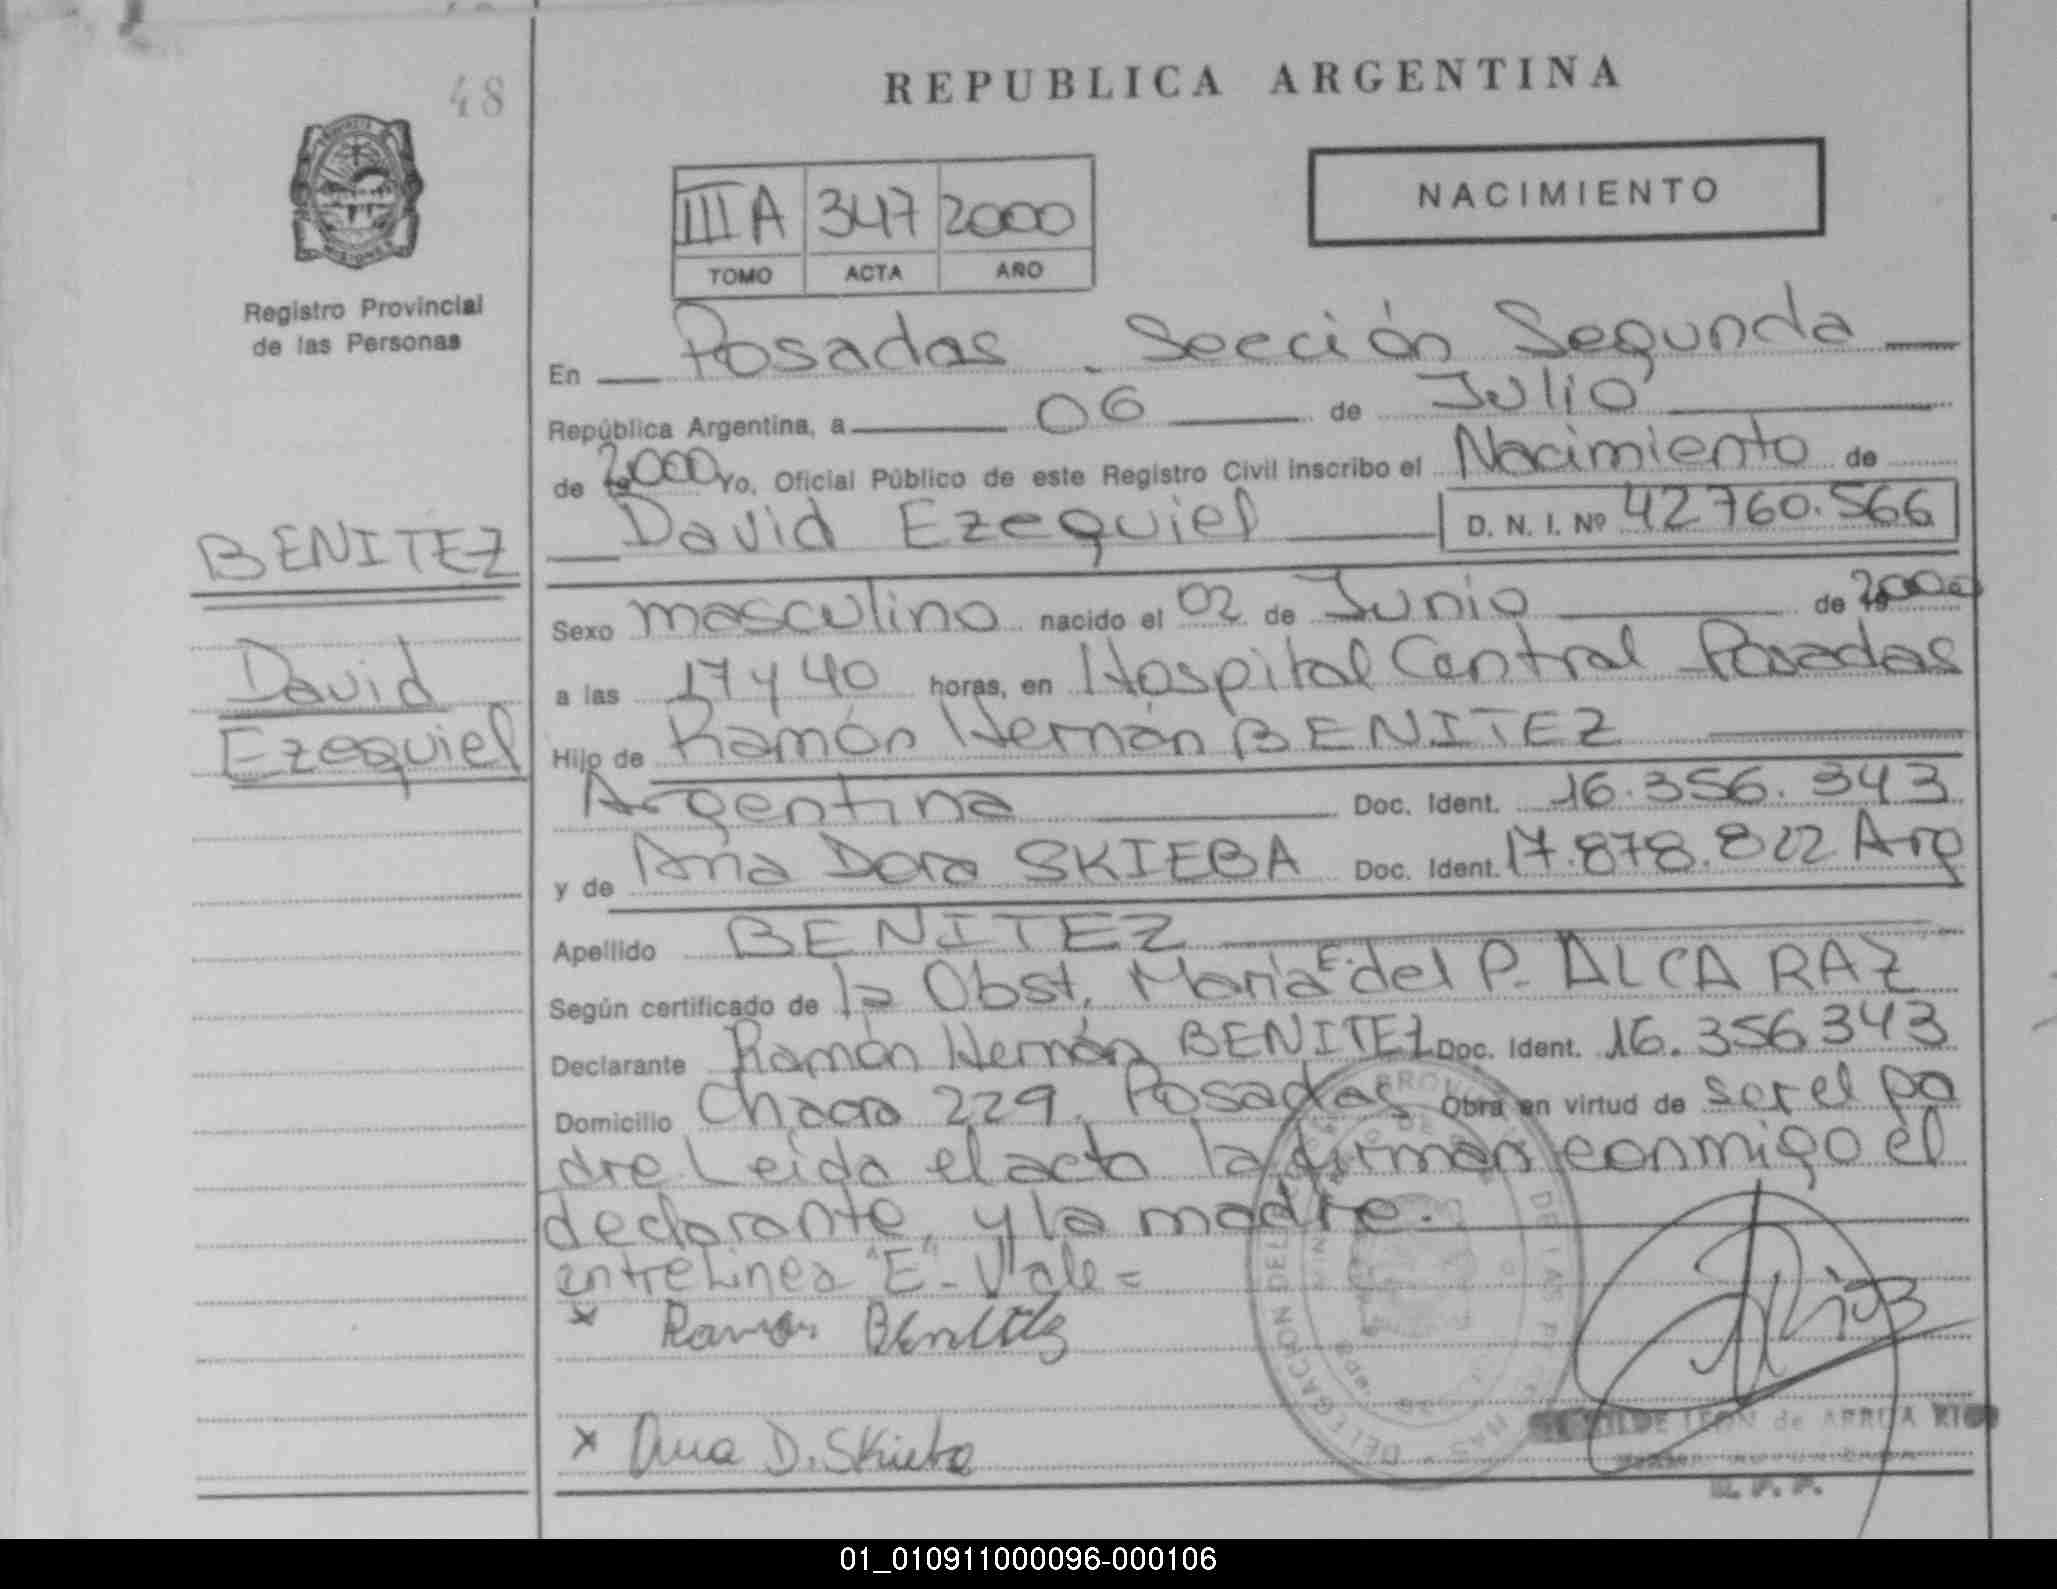 48
REPUBLICA ARGENTINA
NACIMIENTO
III A 347 2000
TOMO ACTA AÑO
Registro Provincial
de las Personas
En Posadas - Sección Segunda
República Argentina, a 06 de Julio
de 2000 Yo, Oficial Público de este Registro Civil inscribo el Nacimiento de
David Ezequiel D. N. I. Nº 42760.566
BENITEZ
David
Ezequiel
Sexo masculino nacido el 02 de Junio de 2000
a las 17 y 40 horas, en Hospital Central Posadas
Hijo de Ramón Hernán BENITEZ
Argentina Doc. Ident. 16.356.343
y de Ana Dora SKIEBA Doc. Ident. 17.878.822 Arg
Apellido BENITEZ
Según certificado de la Obst. María E. del P. ALCARAZ
Declarante Ramón Hernán BENITEZ Doc. Ident. 16.356343
Domicilio Chacra 229. Posadas Obra en virtud de ser el pa
dre Leída el acta la firman conmigo el
declarante, y la madre.
entreLinea "E"- Vale =
x Ramon Benitez
x Ana D. Skieba
Rios
LEON de ARRUA RIOS
01_010911000096-000106